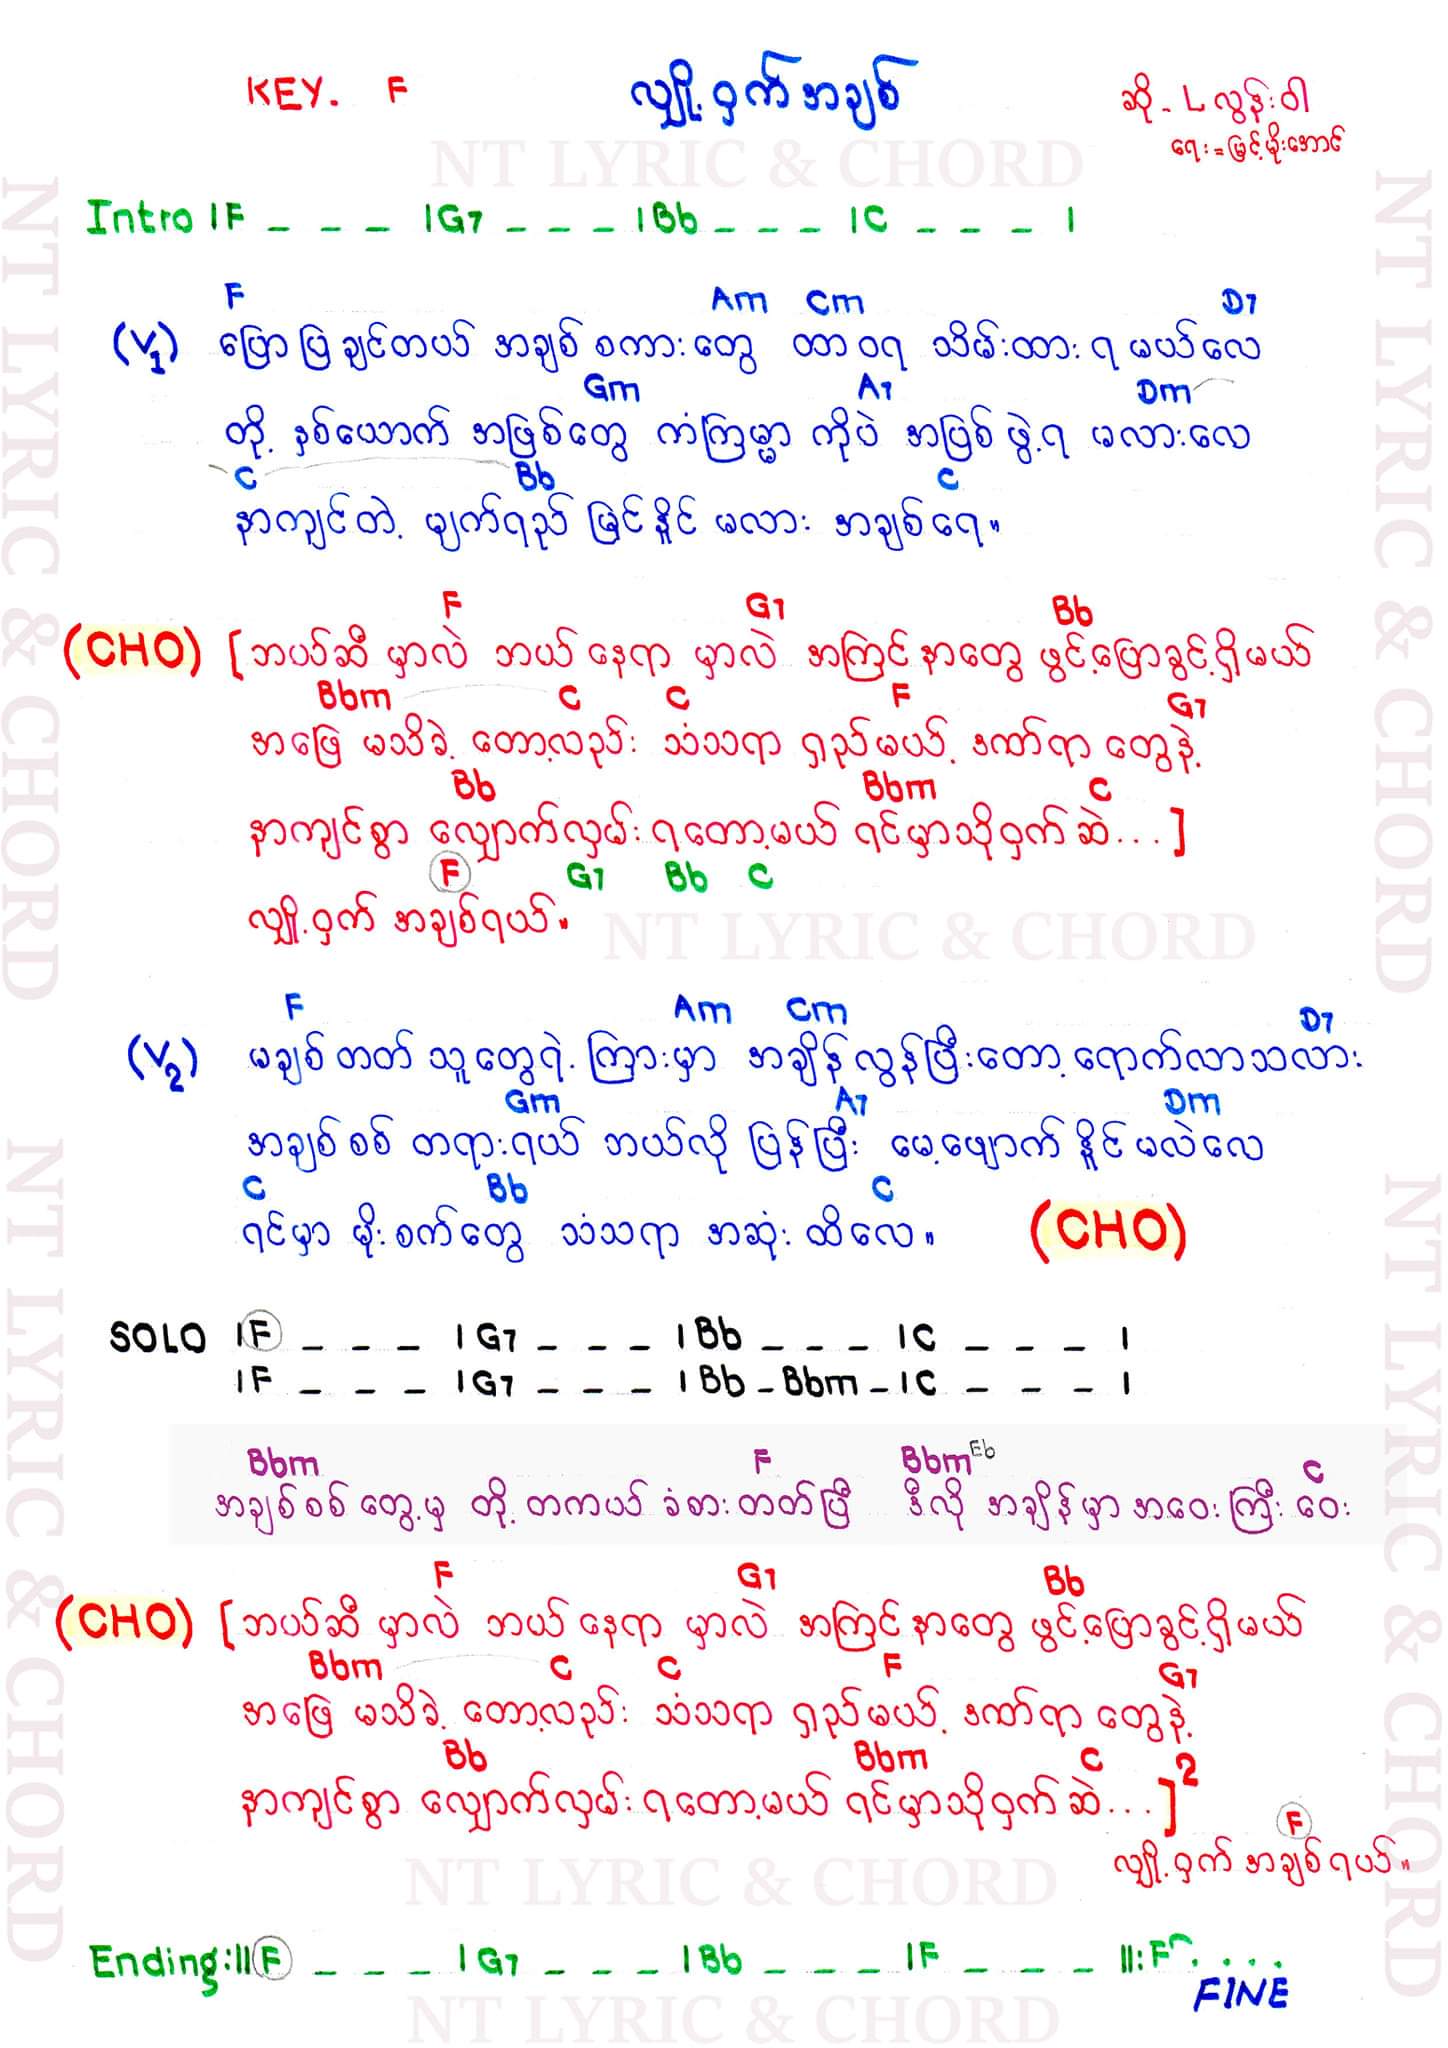 KEY. F လျှို့ဝှက်အချစ် ဆို - L လွန်းဝါ
ရေး = မြင့်မိုးအောင်
NT LYRIC & CHORD
Intro |F _ _ _ |G7 _ _ _ |Bb _ _ _ |C _ _ _ |
F Am Cm D7
(V1) ပြောပြချင်တယ် အချစ်စကားတွေ ထာဝရ သိမ်းထားရမယ်လေ
Gm A7 Dm
တို့နှစ်ယောက် အဖြစ်တွေ ကံကြမ္မာကိုပဲ အပြစ်ဖွဲ့ရ မလားလေ
C Bb C
နာကျင်တဲ့ မျက်ရည် မြင်နိူင်မလား အချစ်ရေ။
F G7 Bb
(CHO) [ဘယ်ဆီမှာလဲ ဘယ်နေရာမှာလဲ အကြင်နာတွေ ဖွင့်ပြောခွင့်ရှိမယ်
Bbm C C F G7
အဖြေ မသိခဲ့တော့လည်း သံသရာ ရှည်မယ့် ဒဏ်ရာတွေနဲ့
Bb Bbm C
နာကျင်စွာ လျှောက်လှမ်းရတော့မယ် ရင်မှာသိုဝှက်ဆဲ...]
F G7 Bb C
လျှို့ဝှက် အချစ်ရယ်။
NT LYRIC & CHORD
F Am Cm D7
(V2) မချစ်တတ်သူတွေရဲ့ကြားမှာ အချိန်လွန်ပြီးတော့ရောက်လာသလား
Gm A7 Dm
အချစ်စစ် တရားရယ် ဘယ်လိုပြန်ပြီး မေ့ဖျောက်နိူင်မလဲလေ
C Bb C
ရင်မှာ မိုးစက်တွေ သံသရာ အဆုံးထိလေ။ (CHO)
SOLO |F _ _ _ |G7 _ _ _ |Bb _ _ _ |C _ _ _ |
|F _ _ _ |G7 _ _ _ |Bb _ Bbm _ |C _ _ _ |
Bbm F Bbm Eb C
အချစ်စစ်တွေ့မှ တို့တကယ်ခံစားတတ်ပြီ ဒီလိုအချိန်မှာ အဝေးကြီးဝေး
F G7 Bb
(CHO) [ဘယ်ဆီမှာလဲ ဘယ်နေရာမှာလဲ အကြင်နာတွေ ဖွင့်ပြောခွင့်ရှိမယ်
Bbm C C F G7
အဖြေ မသိခဲ့တော့လည်း သံသရာ ရှည်မယ့် ဒဏ်ရာတွေနဲ့
Bb Bbm C
နာကျင်စွာ လျှောက်လှမ်းရတော့မယ် ရင်မှာသိုဝှက်ဆဲ...]2
F
လျှို့ဝှက်အချစ်ရယ်။
NT LYRIC & CHORD
Ending:||F _ _ _ |G7 _ _ _ |Bb _ _ _ |F _ _ _ ||:F . . . .
FINE
NT LYRIC & CHORD
NT LYRIC & CHORD
NT LYRIC & CHORD
NT LYRIC & CHORD
NT LYRIC & CHORD